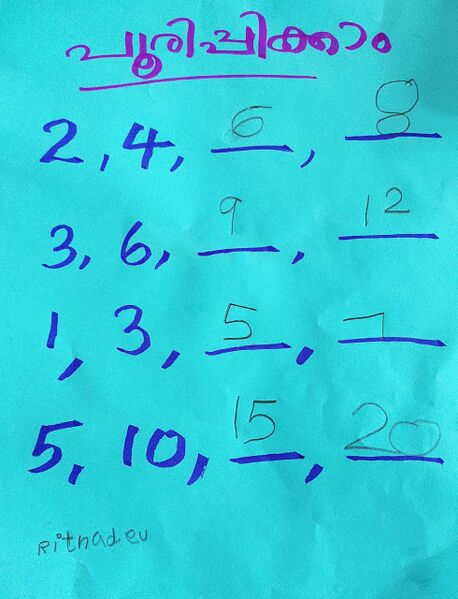 പൂരിപ്പിക്കാം
2, 4, 6, 8
3, 6, 9, 12
1, 3, 5, 7
5, 10, 15, 20
Ritnadev